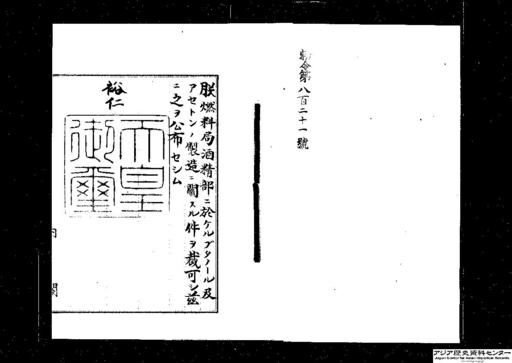 勅令第八百二十一號
朕燃料局酒精部ニ於ケルブタノール及
アセトンノ製造ニ關スル件ヲ裁可シ茲
ニ之ヲ公布セシム
裕仁
天皇
御璽
内閣
アジア歴史資料センター
Japan Center for Asian Historical Records